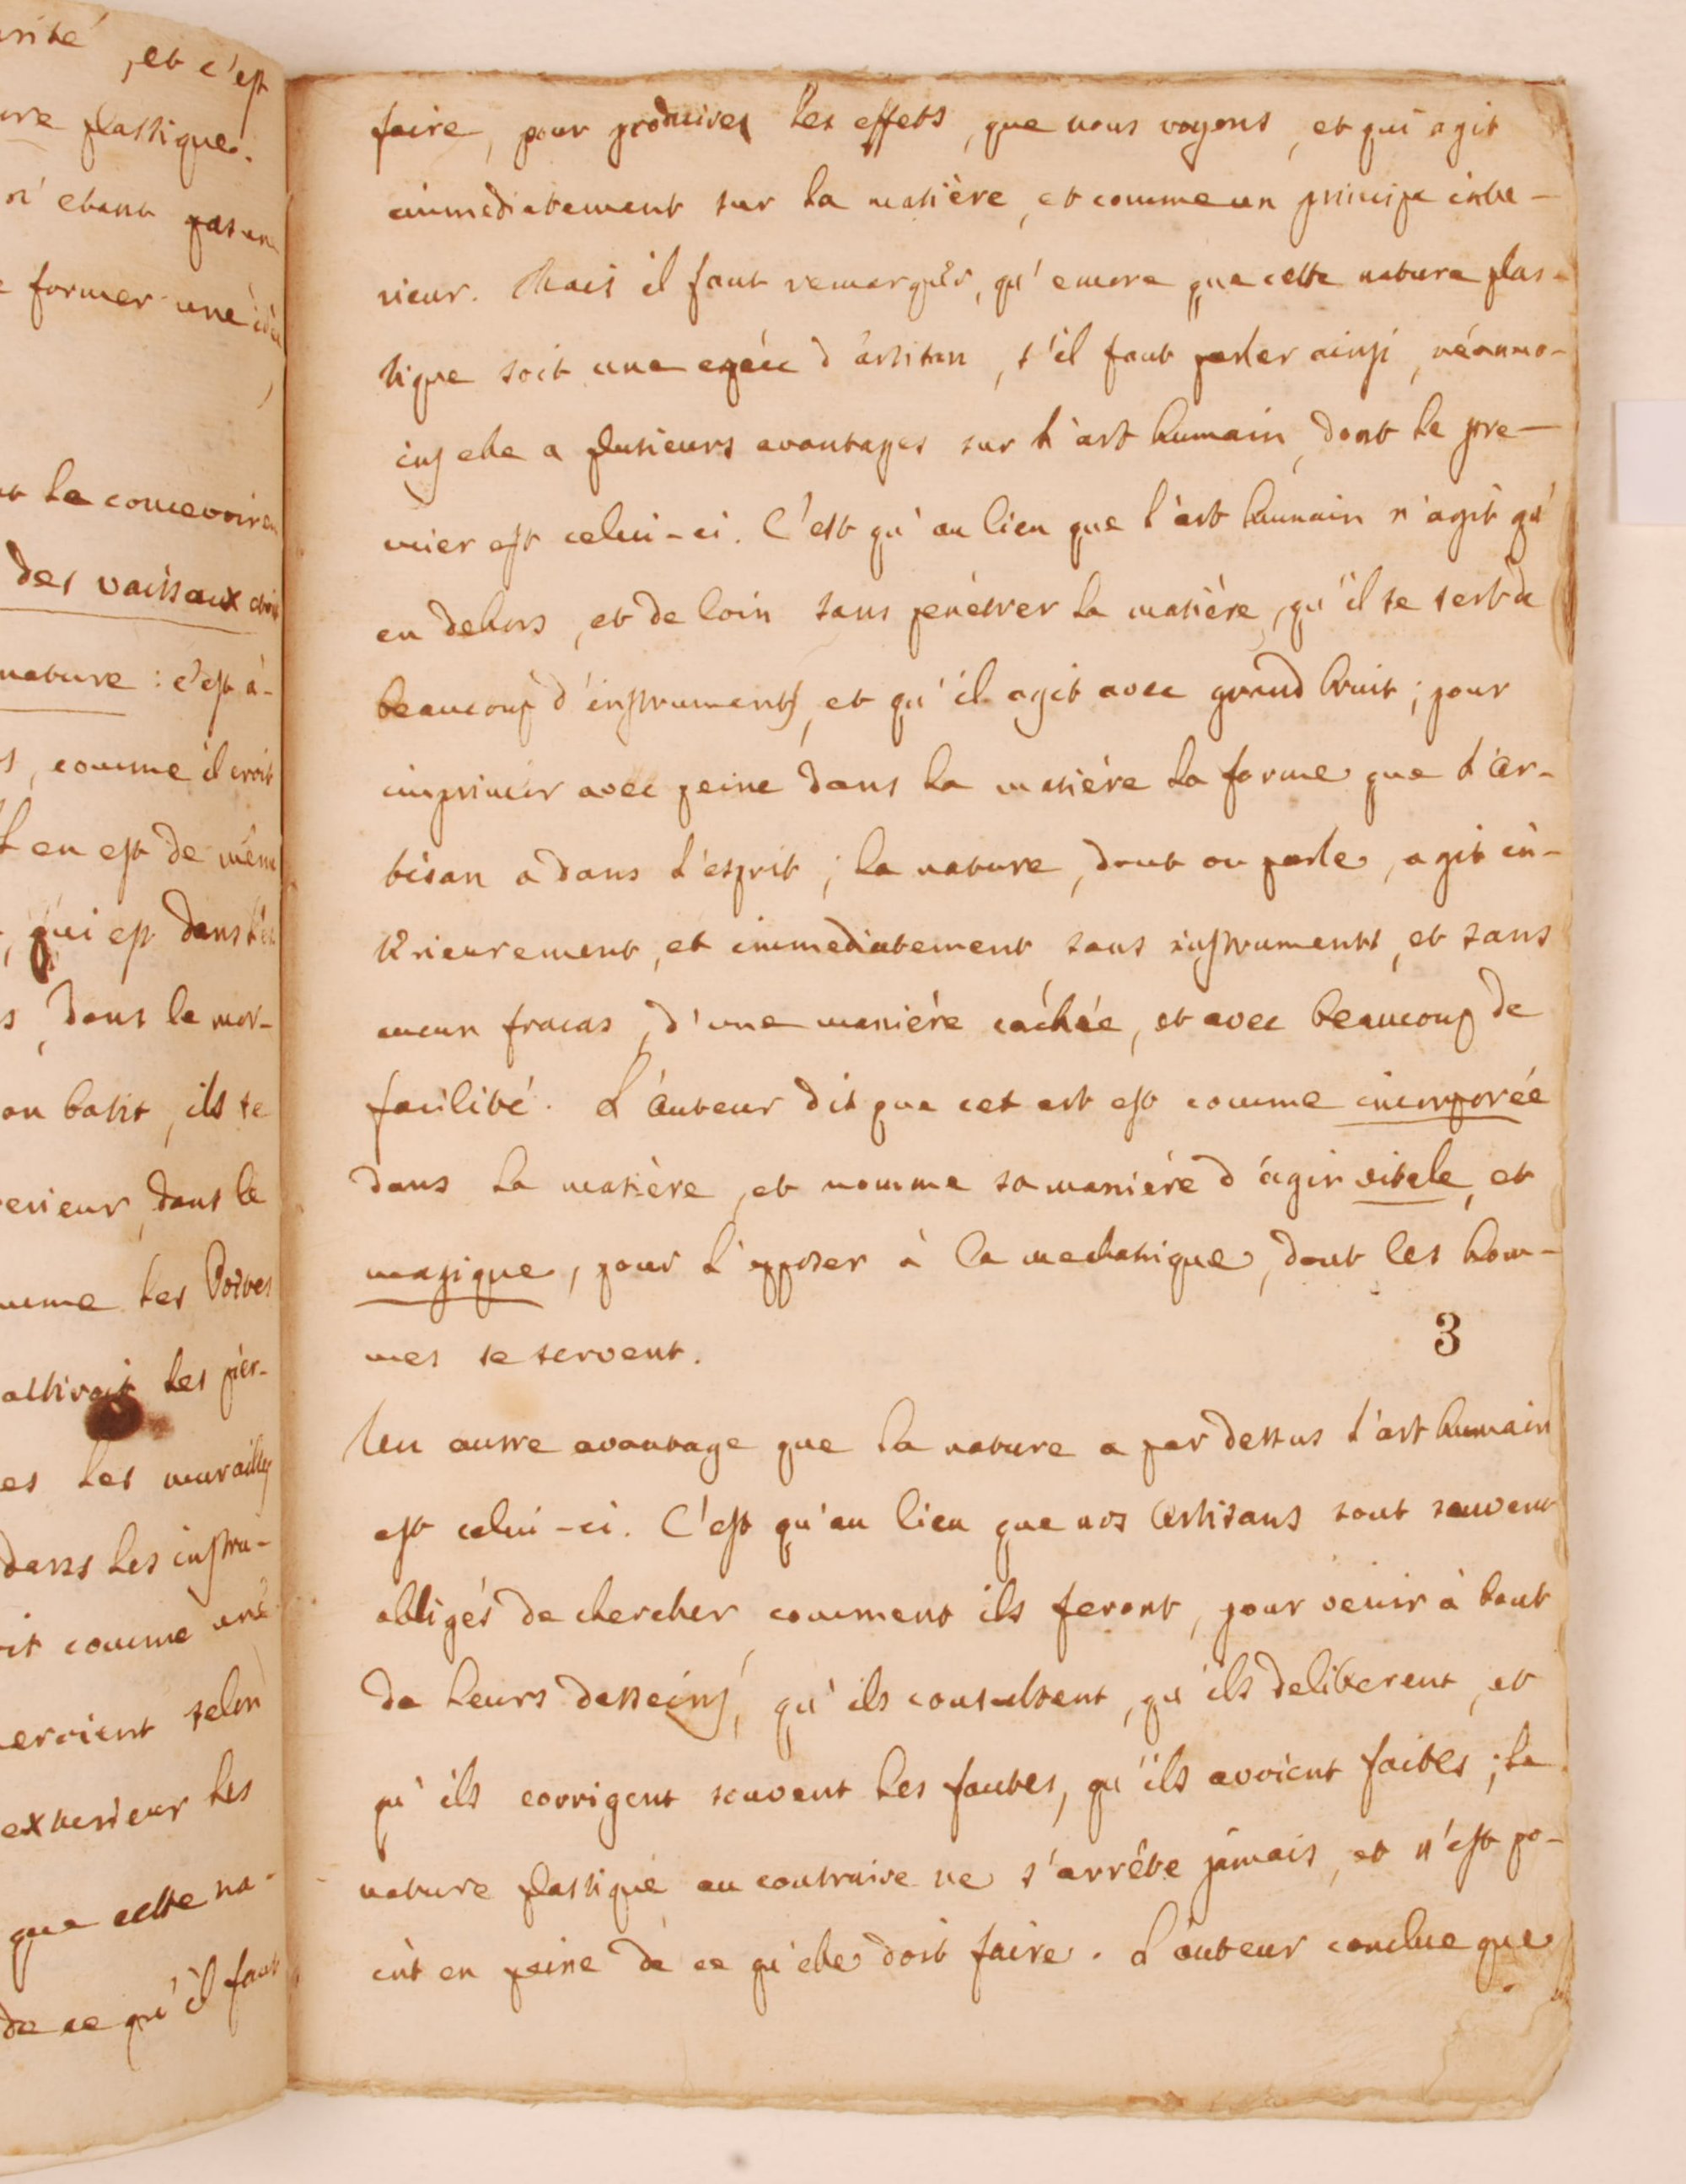 rité, et c'est
ure plastique.
n'etant pas un
e former une idée
nt le concevoir
des vaissaux
nature : c'est à-
s, comme il croit
l en est de même
, qui est dans
s, dans le mor-
on batit, ils se
erieur, dans le
mme les Poëtes
attiroit les pier-
es les murailles
dans les instru-
it comme une
eroient selon
exterieur les
que cette na-
de ce qu'il faut
faire, pour produires les effets, que nous voyons, et qui agit
immediatement sur la matière, et comme un principe inte-
rieur. Mais il faut remarquer, qu'encore que cette nature plas-
tique soit une espéce d'ártisan, s'il faut parler ainsi, néanmo-
ins elle a plusieurs avantages sur l'art humain, dont le pre-
mier est celui-ci. C'est qu'au lieu que l'art humain n'agit qu'
en dehors, et de loin sans penétrer la matière, qu'il se sert de
beaucoup d'instruments, et qu'il agit avec grand bruit ; pour
imprimer avec peine dans la matière la forme que l'ar-
tisan a dans l'esprit ; la nature, dont on parle, agit in-
terieurement, et immediatement sans instruments, et sans
aucun fracas, d'une maniére cáchée, et avec beaucoup de
facilité. L'áuteur dit que cet art est comme incorporée
dans la matière, et nomme sa maniére d'ágir vitale, et
magique, pour l'opposer à la mechanique, dont les hom-
mes se servent.
3
Un autre avantage que la nature a par dessus l'art humain
est celui-ci. C'est qu'au lieu que nos Artisans sont souvent
obligés de chercher comment ils feront, pour venir à bout
de leurs desseins, qu'ils consultent, qu'ils deliberent, et
qu'ils corrigent souvent les fautes, qu'ils avoient faites ; la
nature plastique au contraire ne s'arrête jamais, et n'est po-
int en peine de ce qu'elle doit faire. L'áuteur conclue que